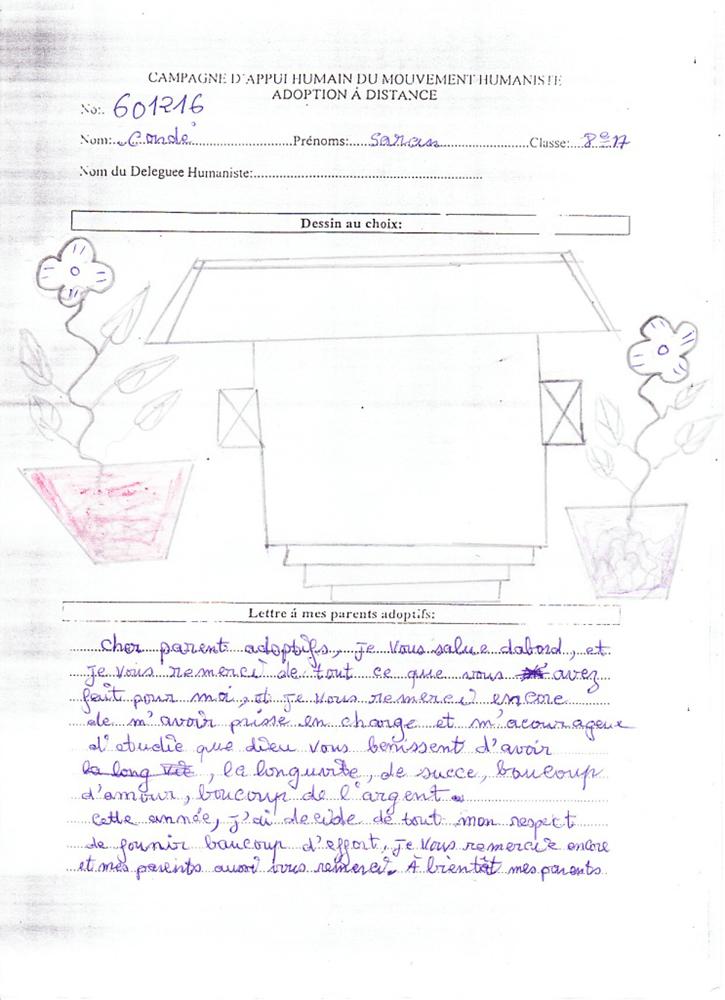 CAMPAGNE D'APPUI HUMAIN DU MOUVEMENT HUMANISTE
ADOPTION Á DISTANCE
No:. 601216
Nom: Condé Prénoms: saran Classe: 8e17
Nom du Deleguee Humaniste:
Dessin au choix:
Lettre á mes parents adoptifs:
cher parent adoptifs, je vous salue dabord, et
je vous remerci de tout ce que vous avez
fait pour moi, et je vous remerci encore
de m'avoir prisse en charge et m'acourageux
d'etudié que dieu vous bénissent d'avoir
la long vie, la longuvite, de succe, baucoup
d'amour, boucoup de l'argent.
cette année, j'ai decide de tout mon respect
de fournir baucoup d'effort, je vous remercie encore
et mes parents aussi vous remerci. À bientôt mes parents